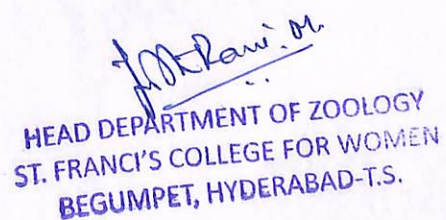 Rani. M.
HEAD DEPARTMENT OF ZOOLOGY
ST. FRANCI'S COLLEGE FOR WOMEN
BEGUMPET, HYDERABAD-T.S.